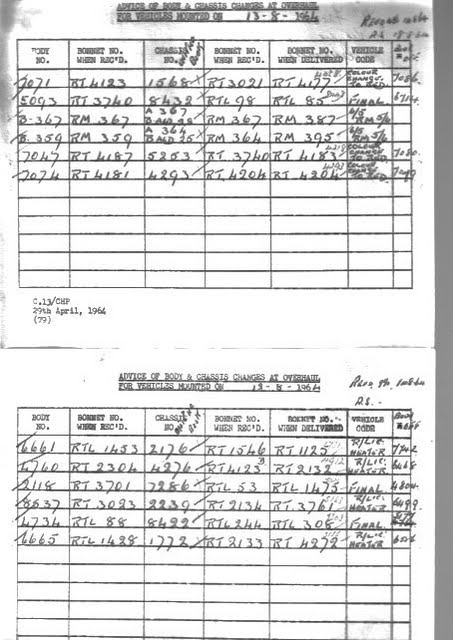 ADVICE OF BODY & CHASSIS CHANGES AT OVERHAUL
FOR VEHICLES MOUNTED ON 13-8-1964
BODY NO. BONNET NO. WHEN REC'D. CHASSIS NO. BONNET NO. WHEN REC'D. BONNET NO. WHEN DELIVERED VEHICLE CODE
7071 RT 4123 1568 RT 3021 RT 4177 COLOUR CHANGE TO RED 7086
5093 RT 3740 8432 RTL 98 RTL 85 FINAL
B.367 RM 367 A 367 RM 367 RM 387 6/5 RM 5/6
B.359 RM 359 A 364 RM 364 RM 395 6/5 RM 5/6
7047 RT 4187 5253 RT 3740 RT 4183 COLOUR CHANGE TO RED 7080
7074 RT 4181 4293 RT 4204 RT 4204 COLOUR CHANGE TO RED
C.13/CHP
29th April, 1964
(79)
ADVICE OF BODY & CHASSIS CHANGES AT OVERHAUL
FOR VEHICLES MOUNTED ON 13-8-1964
BODY NO. BONNET NO. WHEN REC'D. CHASSIS NO. BONNET NO. WHEN REC'D. BONNET NO. WHEN DELIVERED VEHICLE CODE
6661 RTL 1453 2176 RT 1546 RT 1125 R/LIC HEATER
4760 RT 2304 4276 RT 4123 RT 2132 R/LIC HEATER
2118 RT 3701 7286 RTL 53 RTL 1475 FINAL 4804
8637 RT 3023 2239 RT 2134 RT 3761 R/LIC HEATER 6499
4734 RTL 88 8422 RTL 244 RTL 308 FINAL
6665 RTL 1428 1772 RT 2133 RT 4272 R/LIC HEATER